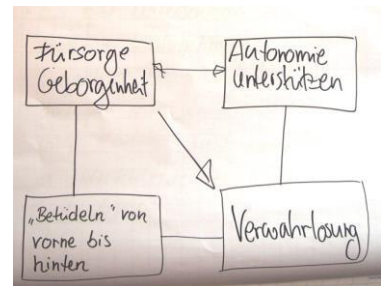 Fürsorge
Geborgenheit
Autonomie
unterstützen
„Betüdeln" von
vorne bis
hinten
Verwahrlosung